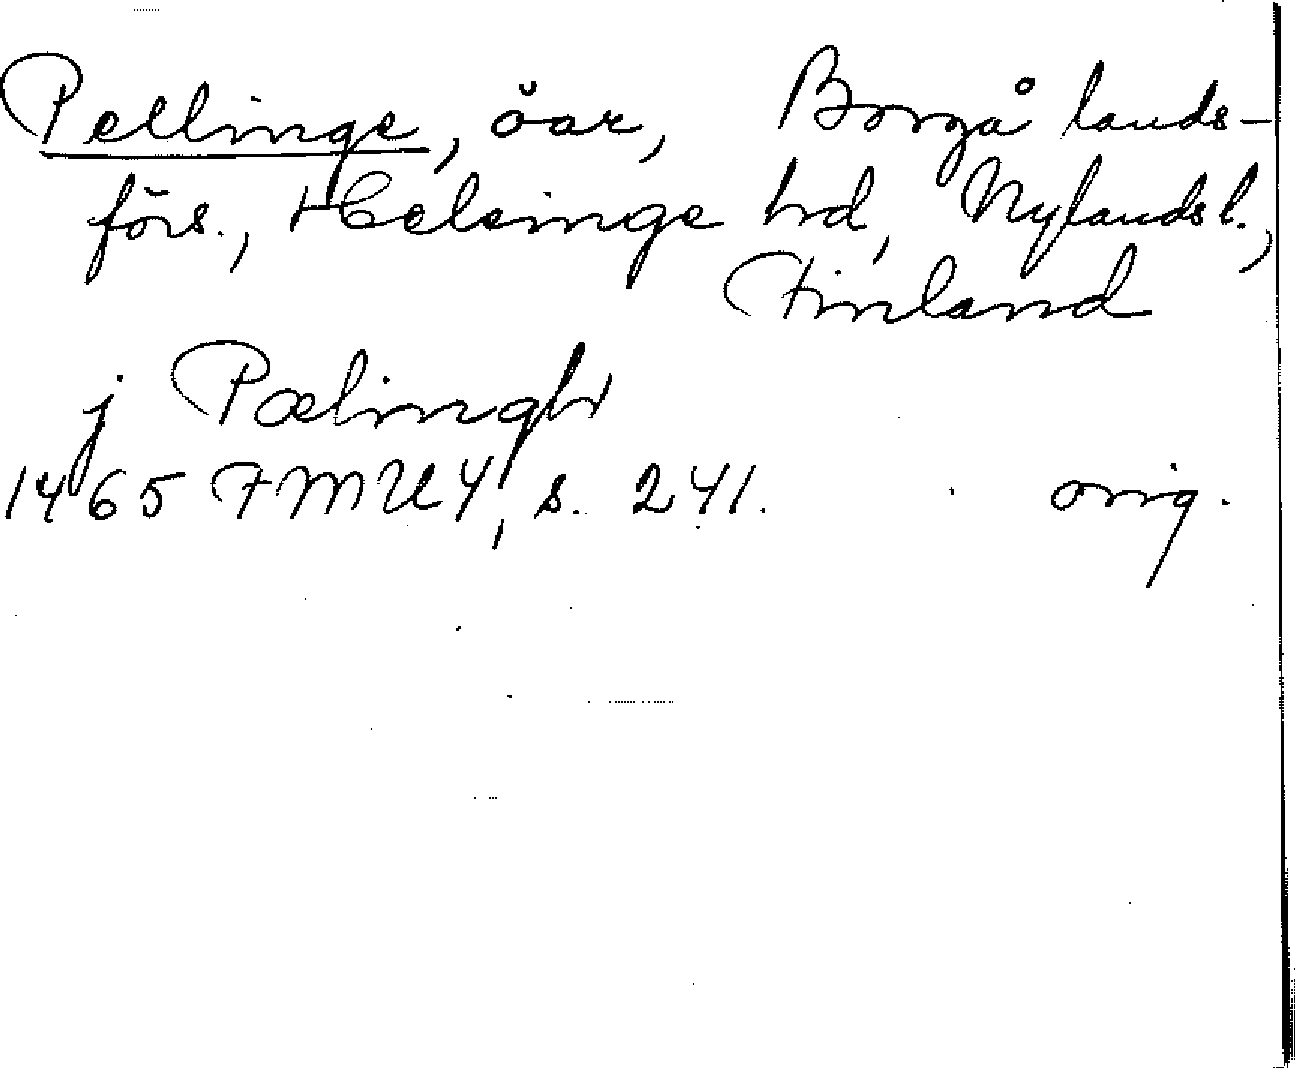 Pellinge, öar, Borgå lands-
förs., Helsinge hd, Nylands l.,
Finland
j Pælingh
1465 FMU 4, s. 241. orig.